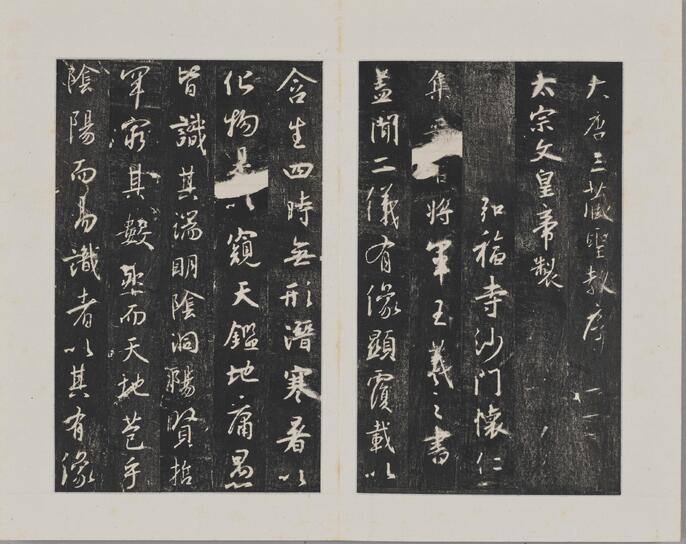 大唐三藏聖教序
太宗文皇帝製
弘福寺沙門懷仁
集 將軍王羲之書
蓋聞二儀有像顯覆載以
含生四時無形潛寒暑以
化物是以窺天鑑地庸愚
皆識其端明陰洞陽賢哲
罕窮其數然而天地苞乎
陰陽而易識者以其有像